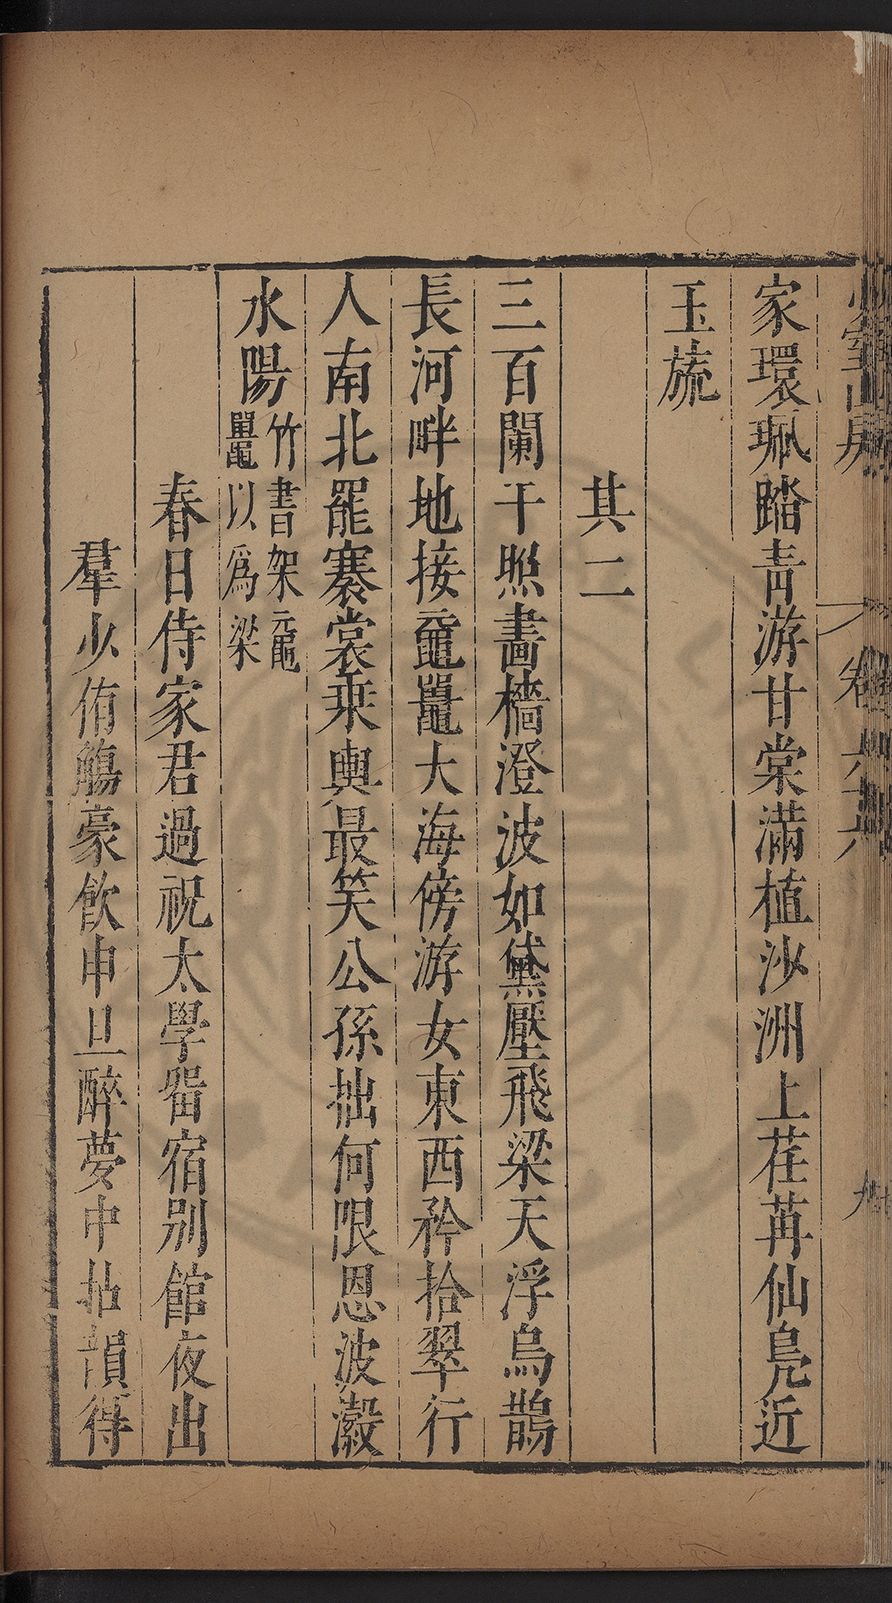 家環珮踏青游甘棠滿植沙洲上荏苒仙鳧近
玉旒
其二
三百闌干照畵檣澄波如黛壓飛梁天浮烏鵲
長河畔地接黿鼉大海傍游女東西矜拾翠行
人南北罷褰裳乗輿最笑公孫拙何限恩波瀲
水陽竹書架黿鼉以爲梁
春日侍家君過祝太學畱宿别館夜出
羣少侑觴豪飲申旦醉夢中拈韻得
卷六十六
九